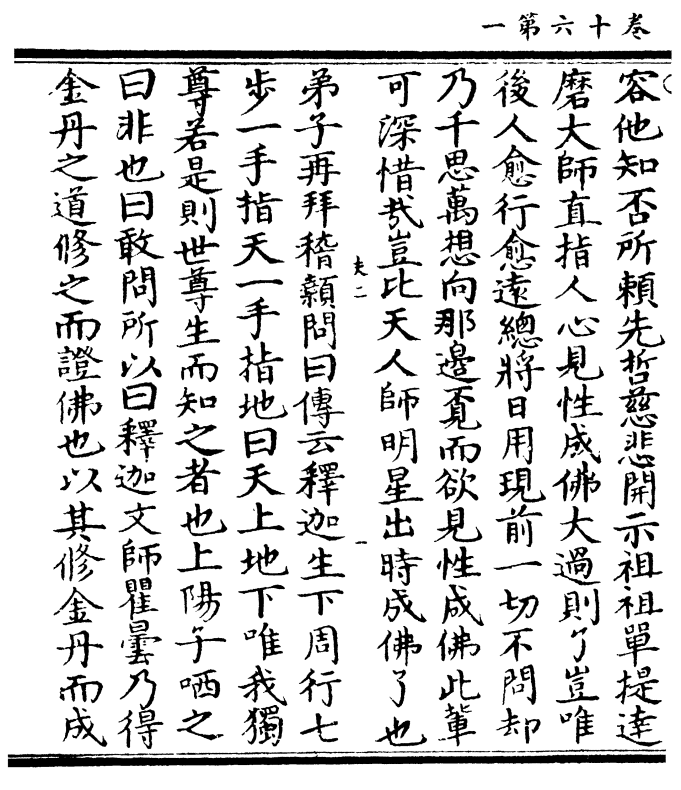 卷十六第一
容他知否所賴先哲慈悲開示祖祖單提達
磨大師直指人心見性成佛大過則了豈唯
後人愈行愈遠總將日用現前一切不問却
乃千思萬想向那邊覔而欲見性成佛此輩
可深惜哉豈比天人師明星出時成佛了也
夫二
一
弟子再拜稽顙問曰傳云釋迦生下周行七
步一手指天一手指地曰天上地下唯我獨
尊若是則世尊生而知之者也上陽子哂之
曰非也曰敢問所以曰釋迦文師瞿曇乃得
金丹之道修之而證佛也以其修金丹而成